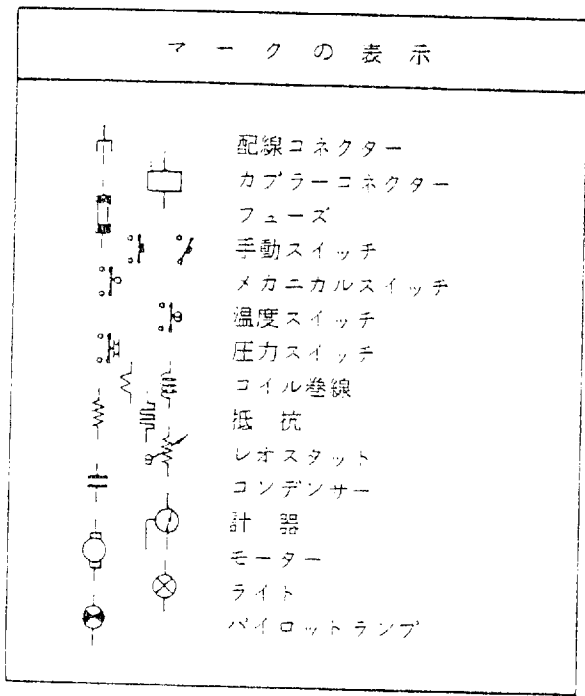 マークの表示
配線コネクター
カプラーコネクター
フューズ
手動スイッチ
メカニカルスイッチ
温度スイッチ
圧力スイッチ
コイル巻線
抵抗
レオスタット
コンデンサー
計器
モーター
ライト
パイロットランプ